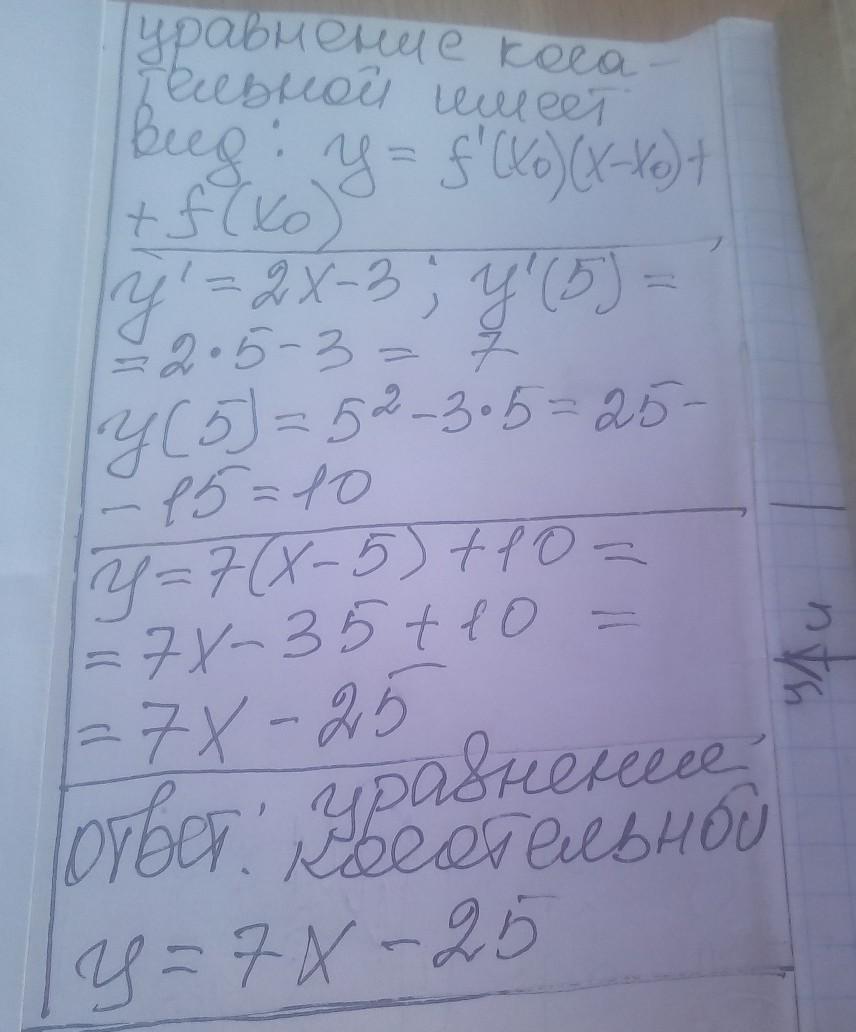 уравнение каса-
тельной имеет
вид: y = f'(x₀)(x-x₀)+
+ f(x₀)
y' = 2x-3 ; y'(5) =
= 2•5-3 = 7
y(5) = 5²-3•5 = 25-
- 15 = 10
y = 7(x-5) + 10 =
= 7x-35 + 10 =
= 7x - 25
ответ: уравнение
касательной
y = 7x - 25